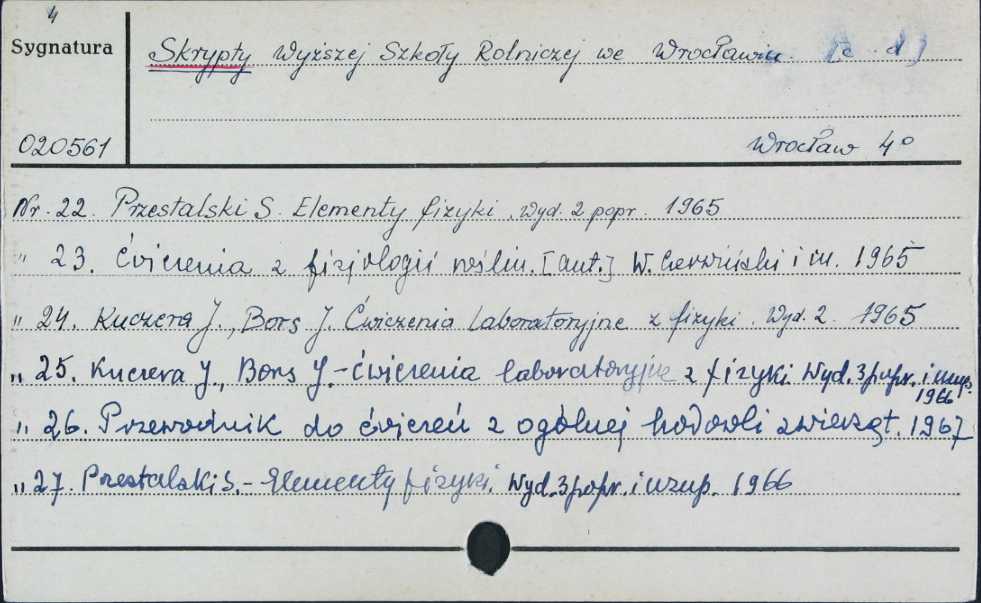 4
Sygnatura
Skrypty Wyższej Szkoły Rolniczej we Wrocławiu. [c. d.]
020561
Wrocław 4°
Nr. 22. Przestalski S. Elementy fizyki. Wyd. 2 popr. 1965
" 23. Ćwiczenia z fizjologii roślin. [aut.] W. Czerwiński i in. 1965
" 24. Kuczera J., Bors J. Ćwiczenia laboratoryjne z fizyki. Wyd. 2. 1965
" 25. Kuczera J., Bors J. - ćwiczenia laboratoryjne z fizyki. Wyd. 3 popr. i uzup. 1966
" 26. Przewodnik do ćwiczeń z ogólnej hodowli zwierząt. 1967
" 27. Przestalski S. - Elementy fizyki. Wyd. 3 popr. i uzup. 1966